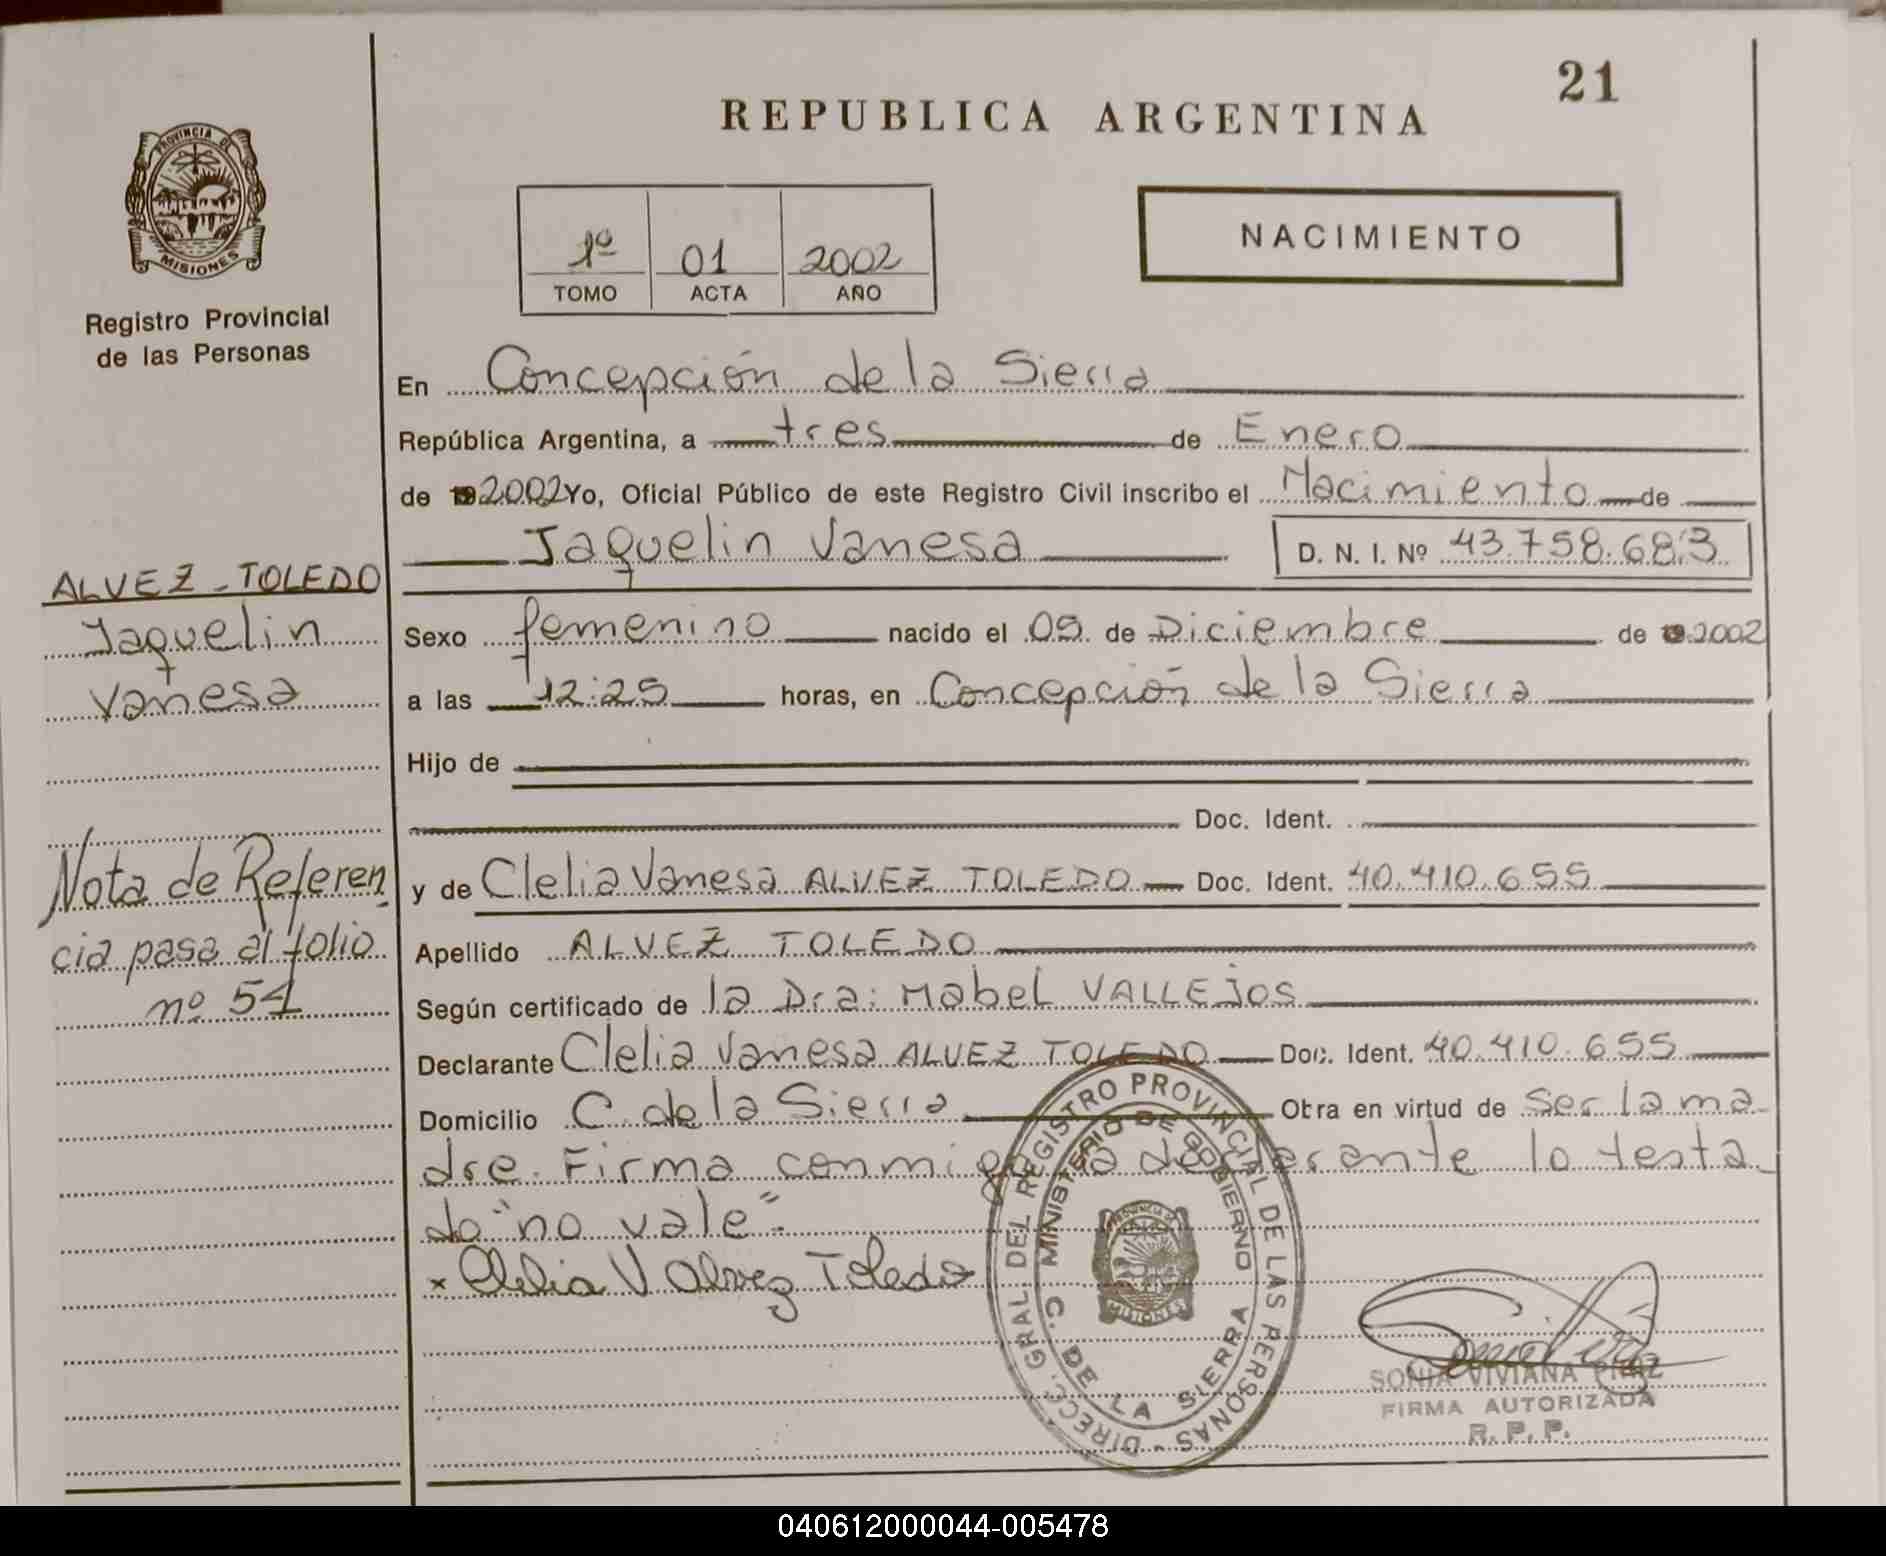 21
REPUBLICA ARGENTINA
PROVINCIA DE
MISIONES
Registro Provincial
de las Personas
1º 01 2002
TOMO ACTA AÑO
NACIMIENTO
En Concepción de la Sierra
República Argentina, a tres de Enero
de 2002 Yo, Oficial Público de este Registro Civil inscribo el Nacimiento de
Jaquelin Vanesa D. N. I. Nº 43.758.683
ALVEZ-TOLEDO
Jaquelin
Vanesa
Sexo femenino nacido el 09 de Diciembre de 2002
a las 12:25 horas, en Concepción de la Sierra
Hijo de
Doc. Ident.
Nota de Referen-
cia pasa al folio
nº 54
y de Clelia Vanesa ALVEZ TOLEDO Doc. Ident. 40.410.655
Apellido ALVEZ TOLEDO
Según certificado de la Dra: Mabel VALLEJOS
Declarante Clelia Vanesa ALVEZ TOLEDO Doc. Ident. 40.410.655
Domicilio C. de la Sierra Obra en virtud de ser la ma-
dre. Firma conmigo la declarante lo testa-
do "no vale".
x Clelia V Alvez Toledo
DIRECC. GRAL. DEL REGISTRO PROVINCIAL DE LAS PERSONAS -
MINISTERIO DE GOBIERNO
C. DE LA SIERRA
PROVINCIA DE
MISIONES
SONIA VIVIANA
FIRMA AUTORIZADA
R. P. P.
040612000044-005478